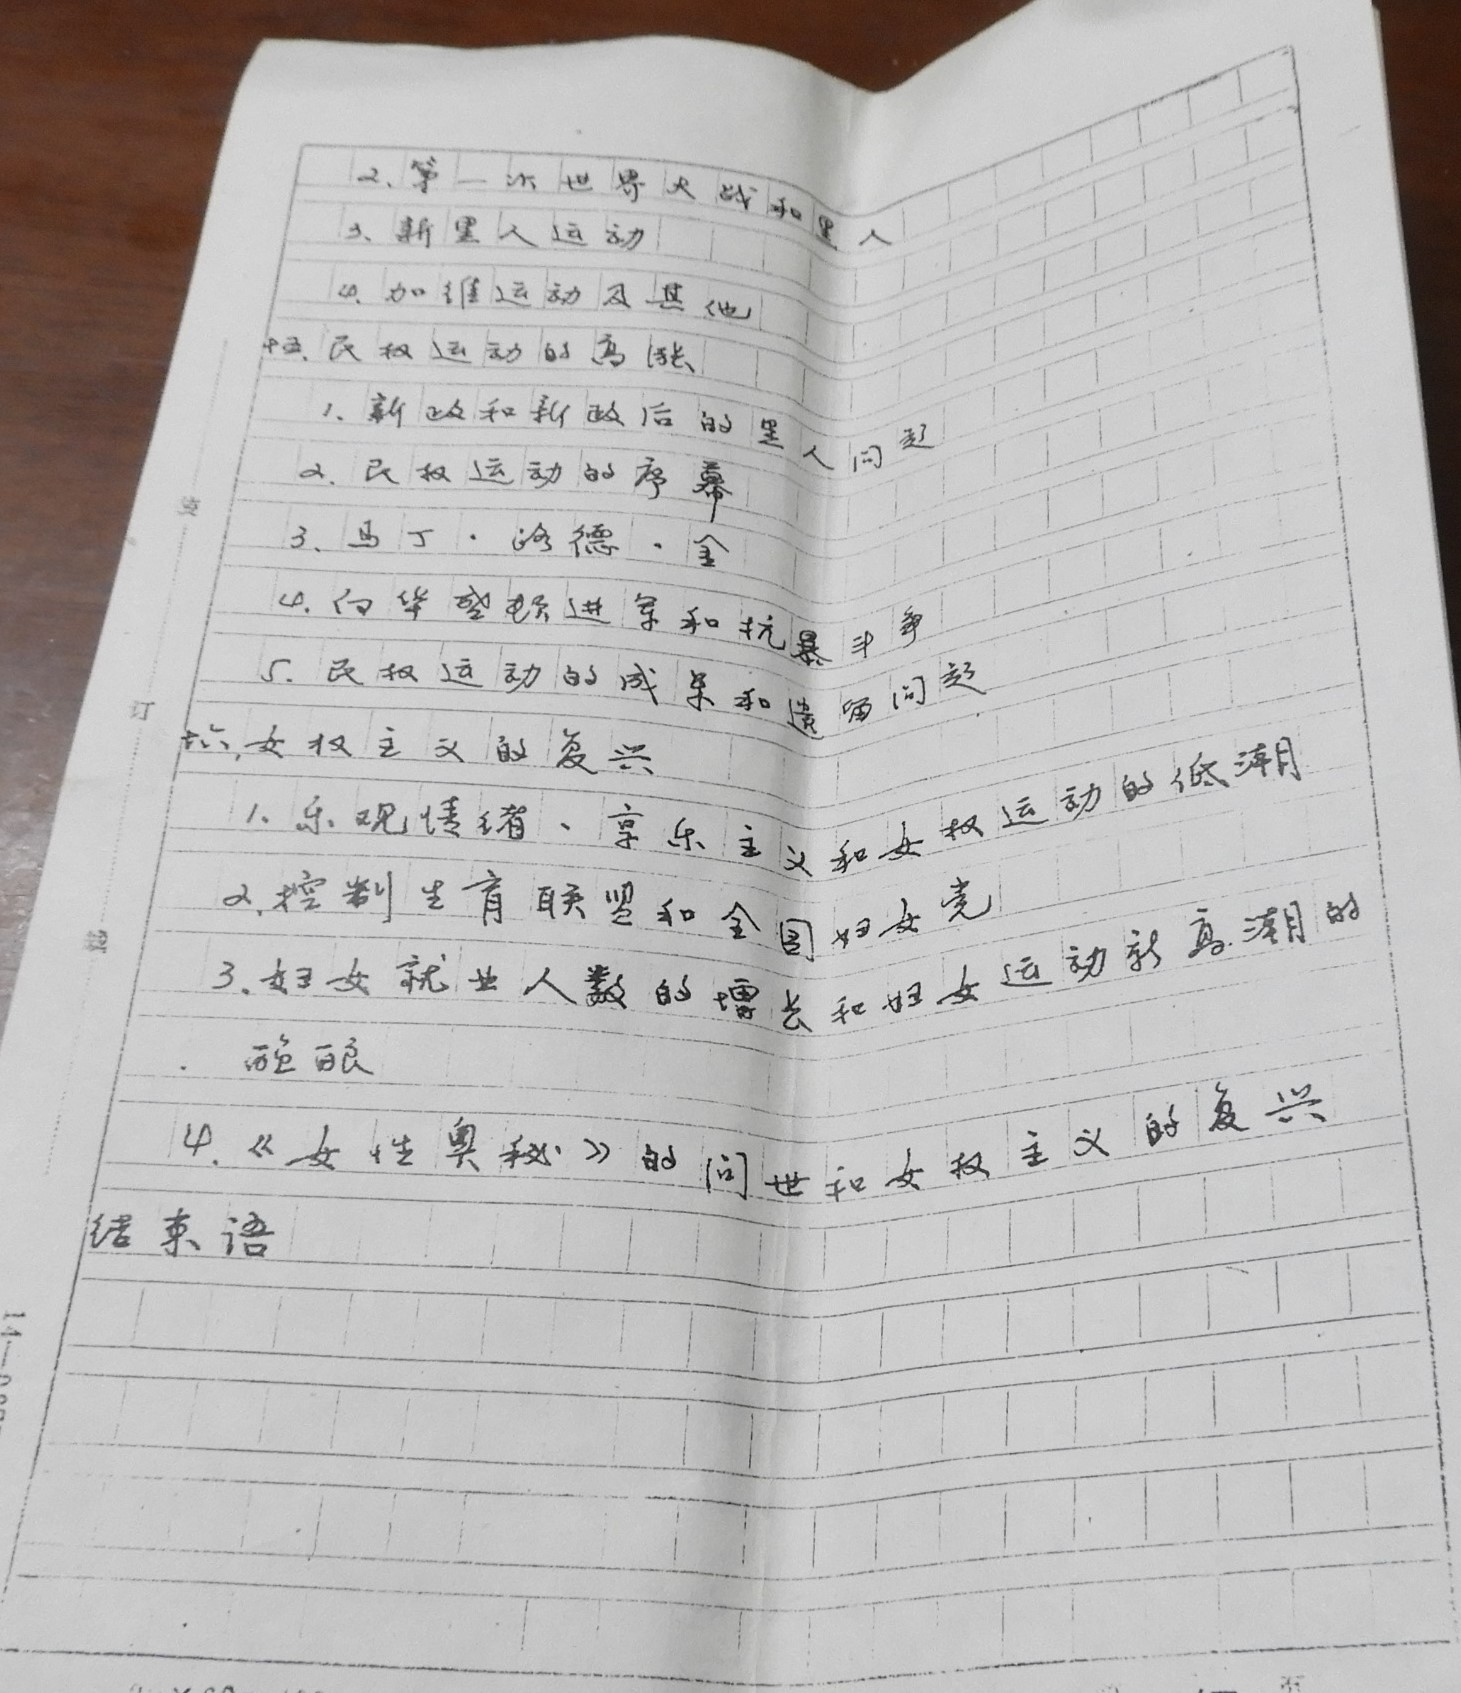 2、第一次世界大战和黑人
3、新黑人运动
4、加维运动及其他
十五、民权运动的高涨
1、新政和新政后的黑人问题
2、民权运动的序幕
3、马丁·路德·金
4、向华盛顿进军和抗暴斗争
5、民权运动的成果和遗留问题
十六、女权主义的复兴
1、乐观情绪、享乐主义和女权运动的低潮
2、控制生育联盟和全国妇女党
3、妇女就业人数的增长和妇女运动新高潮的
酝酿
4、《女性奥秘》的问世和女权主义的复兴
结束语
装
订
线
页